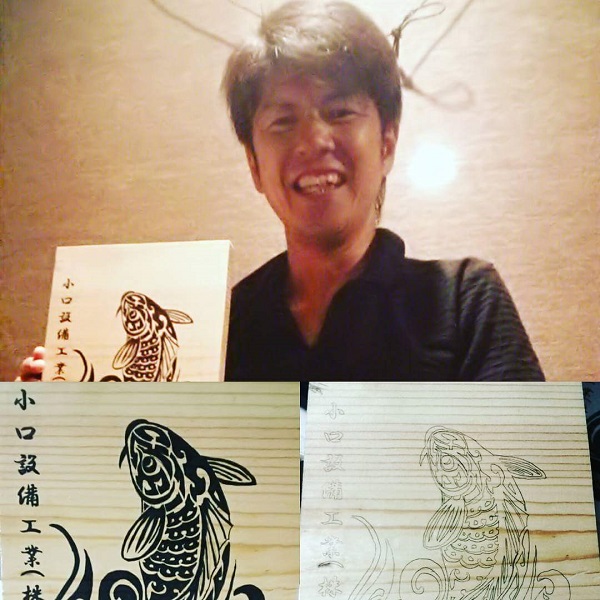 小口設備工業(
小口設備工業(株
小口設備工業(株